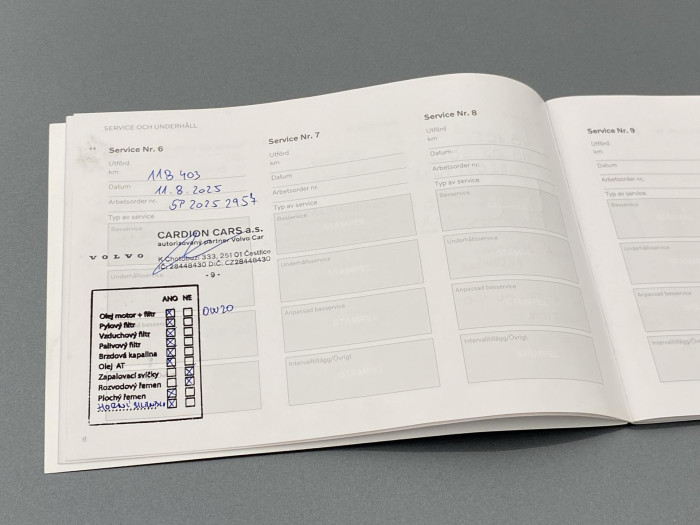 SERVICE OCH UNDERHÅLL
Service Nr. 6
Utförd
km 118 403
Datum 11.8.2025
Arbetsorder nr. SP 2025 2957
Typ av service
Basservice
CARDION CARS a.s.
autorizovaný partner Volvo Car
VOLVO
K Chotobuzi 333, 251 01 Čestlice
IČ: 28448430 DIČ: CZ28448430
- 9 -
Underhållsservice
ANO NE
Olej motor + filtr DW20
Pylový filtr
Vzduchový filtr
Palivový filtr
Brzdová kapalina
Olej AT
Zapalovací svíčky
Rozvodový řemen
Plochý řemen
8
Service Nr. 7
Utförd
km
Datum
Arbetsorder nr.
Typ av service
Basservice
Underhållsservice
Anpassad basservice
Intervalltillägg/Övrigt
Service Nr. 8
Utförd
km
Datum
Arbetsorder nr.
Typ av service
Basservice
Underhållsservice
Anpassad basservice
Intervalltillägg/Övrigt
Service Nr. 9
Utförd
km
Datum
Arbetsorder nr.
Typ av service
Basservice
Underhållsservice
Anpassad basservice
Intervalltillägg/Övrigt